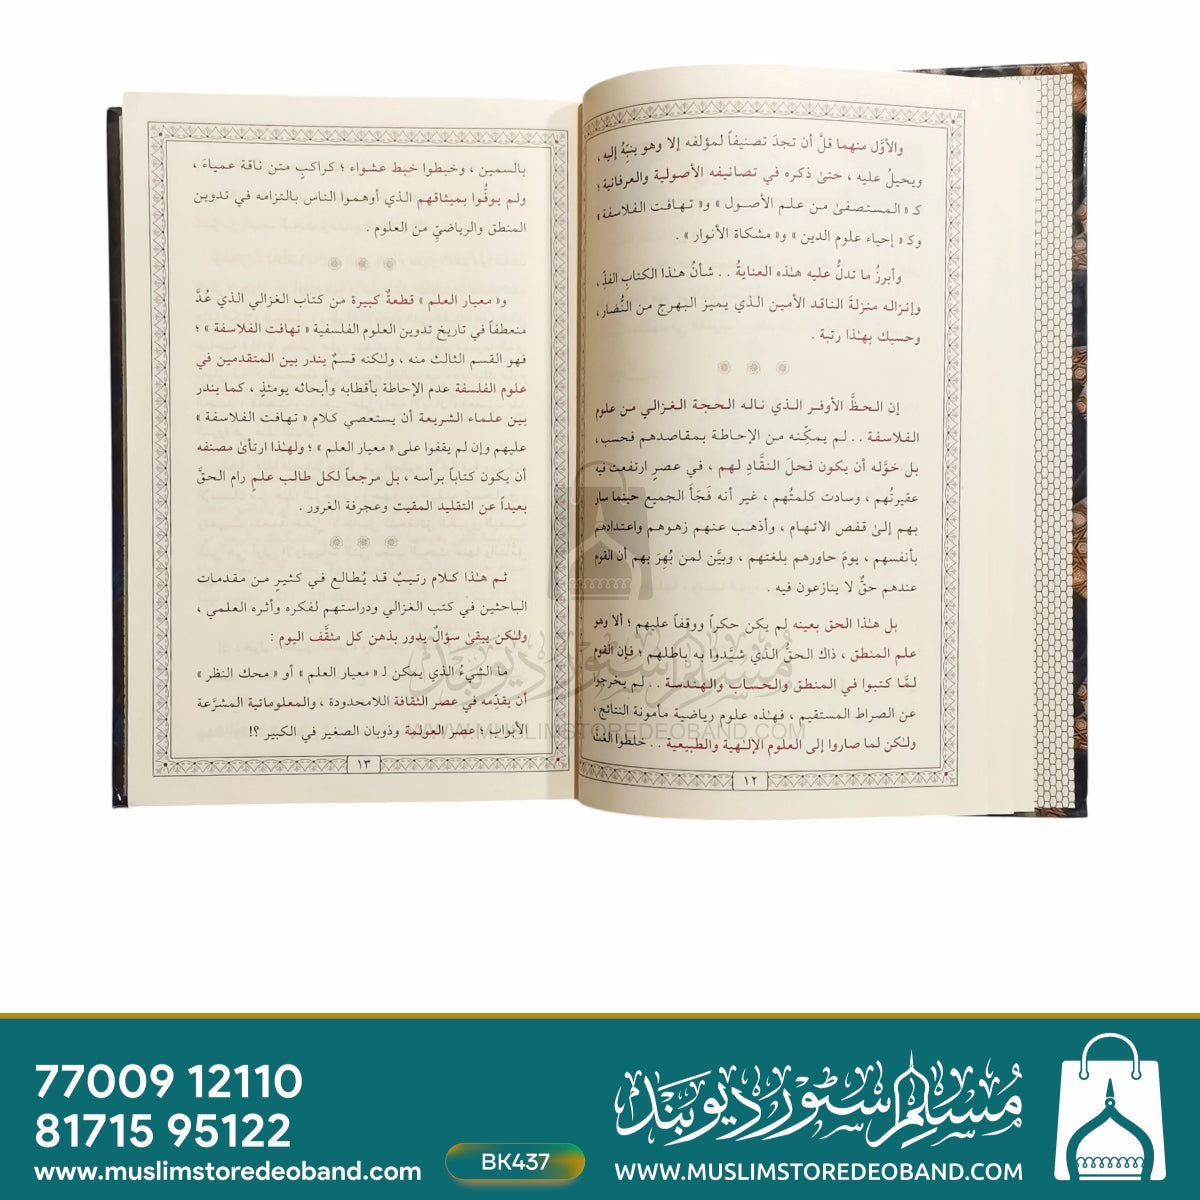 والأوَّل منهما قلَّ أن تجدَ تصنيفاً لمؤلفه إلا وهو ينبِّهُ إليه ،
ويحيلُ عليه ، حتىٰ ذكره في تصانيفه الأصولية والعرفانية ؛
كـ « المستصفىٰ من علم الأصول » و« تهافت الفلاسفة »
وكـ « إحياء علوم الدين » و« مشكاة الأنوار » .
وأبرزُ ما تدلُّ عليه هٰذه العنايةُ . . شأنُ هٰذا الكتابِ الفذِّ ،
وإنزاله منزلةَ الناقد الأمين الذي يميز البهرج من النُّضار ،
وحسبك بهٰذا رتبة .
إن الحظَّ الأوفر الذي ناله الحجة الغزالي من علوم
الفلاسفة . . لم يمكِّنه من الإحاطة بمقاصدهم فحسب ،
بل خوَّله أن يكون فحلَ النقَّادِ لهم ، في عصرٍ ارتفعت فيه
عقيرتُهم ، وسادت كلمتُهم ، غير أنه فَجَأ الجميع حينما سار
بهم إلىٰ قفص الاتهام ، وأذهب عنهم زهوهم واعتدادهم
بأنفسهم ، يومَ حاورهم بلغتهم ، وبيَّن لمن بُهِرَ بهم أن القوم
عندهم حقٌّ لا ينازعون فيه .
بل هٰذا الحق بعينه لم يكن حكراً ووقفاً عليهم ؛ ألا وهو
علم المنطق ، ذاك الحقُّ الذي شيَّدوا به باطلهم ؛ فإن القوم
لمَّا كتبوا في المنطق والحساب والهندسة . . لم يخرجوا
عن الصراط المستقيم ، فهٰذه علوم رياضية مأمونة النتائج ،
ولٰكن لما صاروا إلى العلوم الإلٰهية والطبيعية . . خلطوا الغثَّ
١٢
بالسمين ، وخبطوا خبط عشواء ؛ كراكبِ متن ناقة عمياءَ ،
ولم يوفُّوا بميثاقهم الذي أوهموا الناس بالتزامه في تدوين
المنطق والرياضيِّ من العلوم .
و« معيار العلم » قطعةٌ كبيرة من كتاب الغزالي الذي عُدَّ
منعطفاً في تاريخ تدوين العلوم الفلسفية « تهافت الفلاسفة » ؛
فهو القسم الثالث منه ، ولٰكنه قسمٌ يندر بين المتقدمين في
علوم الفلسفة عدم الإحاطة بأقطابه وأبحاثه يومئذٍ ، كما يندر
بين علماء الشريعة أن يستعصي كلام « تهافت الفلاسفة »
عليهم وإن لم يقفوا على « معيار العلم » ؛ ولهٰذا ارتأىٰ مصنفه
أن يكون كتاباً برأسه ، بل مرجعاً لكل طالب علمٍ رام الحقَّ
بعيداً عن التقليد المقيت وعجرفة الغرور .
ثم هٰذا كلام رتيبٌ قد يُطالع في كثيرٍ من مقدمات
الباحثين في كتب الغزالي ودراستهم لفكره وأثره العلمي ،
ولٰكن يبقىٰ سؤالٌ يدور بذهن كل مثقَّف اليوم :
ما الشيءُ الذي يمكن لـ « معيار العلم » أو « محك النظر »
أن يقدِّمه في عصر الثقافة اللامحدودة ، والمعلوماتية المشرَّعة
الأبواب ؛ عصر العولمة وذوبان الصغير في الكبير ؟!
١٣
مسلم سٹور دیوبند
WWW.MUSLIMSTOREDEOBAND.COM
77009 12110
81715 95122
www.muslimstoredeoband.com
BK437
مسلم سٹور دیوبند
WWW.MUSLIMSTOREDEOBAND.COM